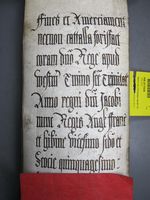 Fines et Amerciament
necnon catalla forisfact
coram dno Rege apud
westm Termino sce Trinitat
Anno regni dni Jacobi
nunc Regis Angl ffranc
et hibnie vicesimo scdo et
Scocie quinquagesimo